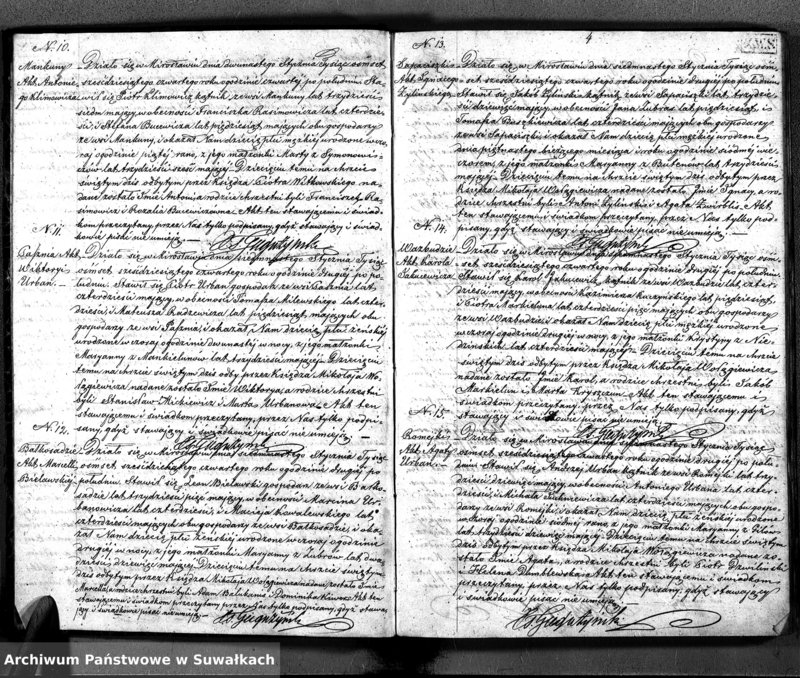 N. 10.
Mankuny
Akt Antonie-
go Klimowicza
Działo się w Mirosławiu dnia dwunastego Stycznia Tysiąc osmset
sześćdziesiątego czwartego roku o godzinie czwartej po południu. Sta-
wił się Piotr Klimowicz kątnik, ze wsi Mankuny lat trzydzieści
siedm mający, w obecności Franciszka Rasimowicza lat czterdzie-
ści, i Stefana Bucewicza lat pięćdziesiąt, mających obu gospodarzy
ze wsi Mankuny, i okazał Nam dziecię płci męzkiej urodzone wczo-
raj o godzinie piątej rano, z jego małżonki Marty z Symonowi-
czów lat trzydzieści sześć mającej. Dziecięciu temu na chrzcie
świętym dziś odbytym przez Księdza Piotra Witkowskiego na-
dane zostało Imię Antoni a rodzice chrzestni byli Franciszek Ra-
simowicz i Rozalia Bucewiczowna. Akt ten stawającemu i świad-
kom przeczytany, przez Nas tylko podpisany, gdyż stawający i świad-
kowie pisać nie umieją.
N. 11.
Akt
Wiktoryi
Urban.
Działo się w Mirosławiu dnia Stycznia Tysiąc
osmset sześćdziesiątego czwartego roku o godzinie drugiej po po-
łudniu. Stawił się Piotr Urban gospodarz ze wsi lat
czterdzieści mający, w obecności Tomasza Milewskiego lat czter-
dzieści, i Mateusza Radzewicza lat pięćdziesiąt, mających obu
gospodarzy ze wsi i okazał Nam dziecię płci żeńskiej
urodzone wczoraj o godzinie dwunastej w nocy, z jego małżonki
Maryanny z lat trzydzieści mającej. Dziecięciu
temu na chrzcie świętym dziś odbytym przez Księdza Mikołaja Wo-
łągiewicza nadane zostało Imię Wiktorya, a rodzice chrzestni
byli Stanisław Mickiewicz i Marta Urbanowa. Akt ten
stawającemu i świadkom przeczytany, przez Nas tylko podpi-
sany, gdyż stawający i świadkowie pisać nie umieją.
N. 12.
Bałkosadzie
Akt Marcelli
Bielawskiej
Działo się w Mirosławiu dnia Stycznia Tysiąc
osmset sześćdziesiątego czwartego roku o godzinie drugiej po
południu. Stawił się Leon Bielawski gospodarz ze wsi Bałko-
sadzie lat trzydzieści pięć mający, w obecności Marcina Ur-
banowicza lat czterdzieści, i Macieja Kowalewskiego lat
czterdzieści mających obu gospodarzy ze wsi Bałkosadzie i oka-
zał Nam dziecię płci żeńskiej urodzone wczoraj o godzinie
drugiej w nocy, z jego małżonki Maryanny z Lubrów lat dwa-
dzieścia dziewięć mającej. Dziecięciu temu na chrzcie świętym
dziś odbytym przez Księdza Mikołaja Wołągiewicza nadane zostało Imię
Marcella, a rodzice chrzestni byli Adam i Dominika Akt ten
stawającemu i świadkom przeczytany przez Nas tylko podpisany, gdyż stawa-
jący i świadkowie pisać nie umieją.
4
N. 13.
Akt Ignacego
Żylinskiego.
Działo się w Mirosławiu dnia siedmnastego Stycznia Tysiąc osm-
set sześćdziesiątego czwartego roku o godzinie drugiej po południu
Stawił się Jakób Żyliński kątnik, ze wsi lat trzydzie-
ści dziewięć mający, w obecności Jana Lubras lat pięćdziesiąt, i
Tomasza Paszkiewicza lat czterdzieści mających obu gospodarzy
ze wsi i okazał Nam dziecię płci męzkiej urodzone
dnia piętnastego bieżącego miesiąca i roku o godzinie siódmej wie-
czorem, z jego małżonki Maryanny z lat trzydzieści
mającej. Dziecięciu temu na chrzcie świętym dziś odbytym przez
Księdza Mikołaja Wołągiewicza nadane zostało Imię Ignacy, a ro-
dzice chrzestni byli Antoni Żyliński i Agata Akt
ten stawającemu i świadkom przeczytany, przez Nas tylko pod-
pisany, gdyż stawający i świadkowie pisać nie umieją.
N. 14.
Akt Karola
Działo się w Mirosławiu dnia siedmnastego Stycznia Tysiąc osm-
set sześćdziesiątego czwartego roku o godzinie drugiej po południu.
Stawił się Karol kątnik ze wsi lat czter-
dzieści mający, w obecności Kazimierza lat pięćdziesiąt,
i Piotra lat czterdzieści pięć mających obu gospodarzy
ze wsi i okazał Nam dziecię płci męzkiej urodzone
wczoraj o godzinie drugiej w nocy, z jego małżonki Krystyny z Nie-
lat czterdzieści mającej. Dziecięciu temu na chrzcie
świętym dziś odbytym przez Księdza Mikołaja Wołągiewicza
nadane zostało Imię Karol, a rodzice chrzestni byli Jakób
i Marta Akt ten stawającemu i
świadkom przeczytany, przez Nas tylko podpisany, gdyż
stawający i świadkowie pisać nie umieją.
N. 15.
Romejki
Akt Agaty
Urban.
Działo się w Mirosławiu dnia Stycznia Tysiąc
osmset sześćdziesiątego czwartego roku o godzinie drugiej po połu-
dniu Stawił się Andrzej Urban kątnik ze wsi Romejki lat trzy-
dzieści dziewięć mający, w obecności Antoniego Urbana lat czter-
dzieści, i Michała lat czterdzieści mających obu gospo-
darzy ze wsi Romejki, i okazał Nam dziecię płci żeńskiej urodzone
wczoraj o godzinie siódmej rano z jego małżonki Maryanny z
lat trzydzieści dziewięć mającej. Dziecięciu temu na chrzcie świętym
dziś odbytym przez Księdza Mikołaja Wołągiewicza nadane zo-
stało Imię Agata, a rodzice chrzestni byli Piotr
i Helena Akt ten stawającemu i świadkom
przeczytany, przez Nas tylko podpisany, gdyż stawający
i świadkowie pisać nie umieją.
Archiwum Państwowe w Suwałkach